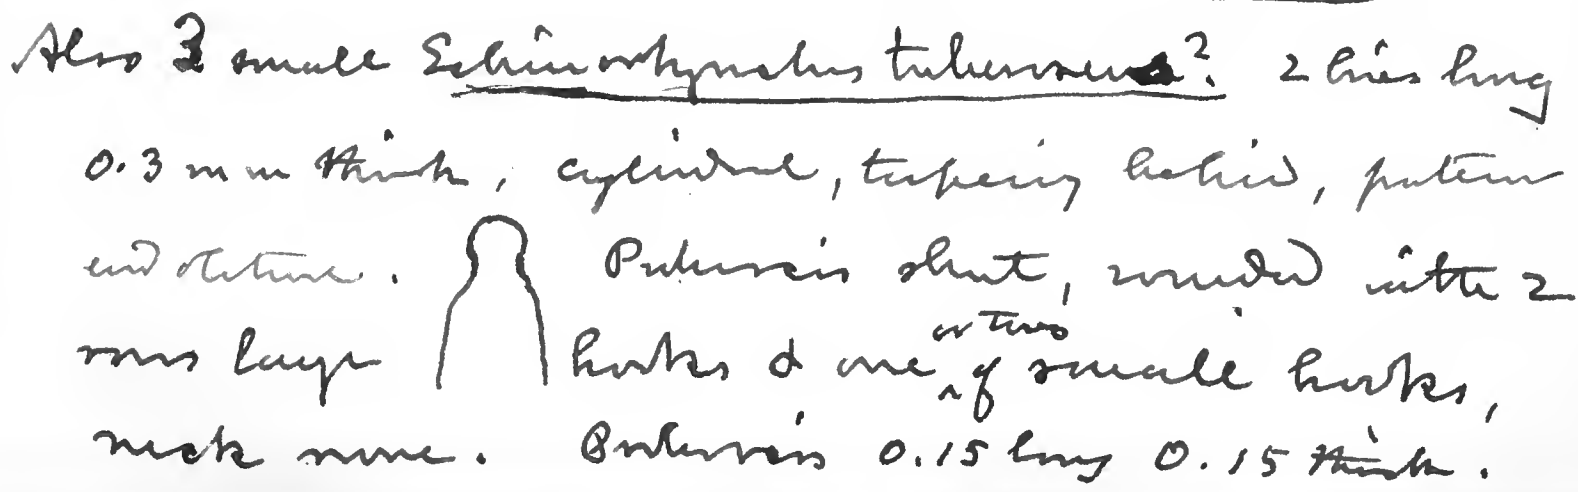 Also 3 small Echinorhynchus tuberosus? 2 lines long
0.3 mm thick, cylindrical, tapering behind, posterior
end obtuse. Proboscis short, rounded with 2
rows large hooks & one or two of small hooks,
neck none. Proboscis 0.15 long 0.15 thick.